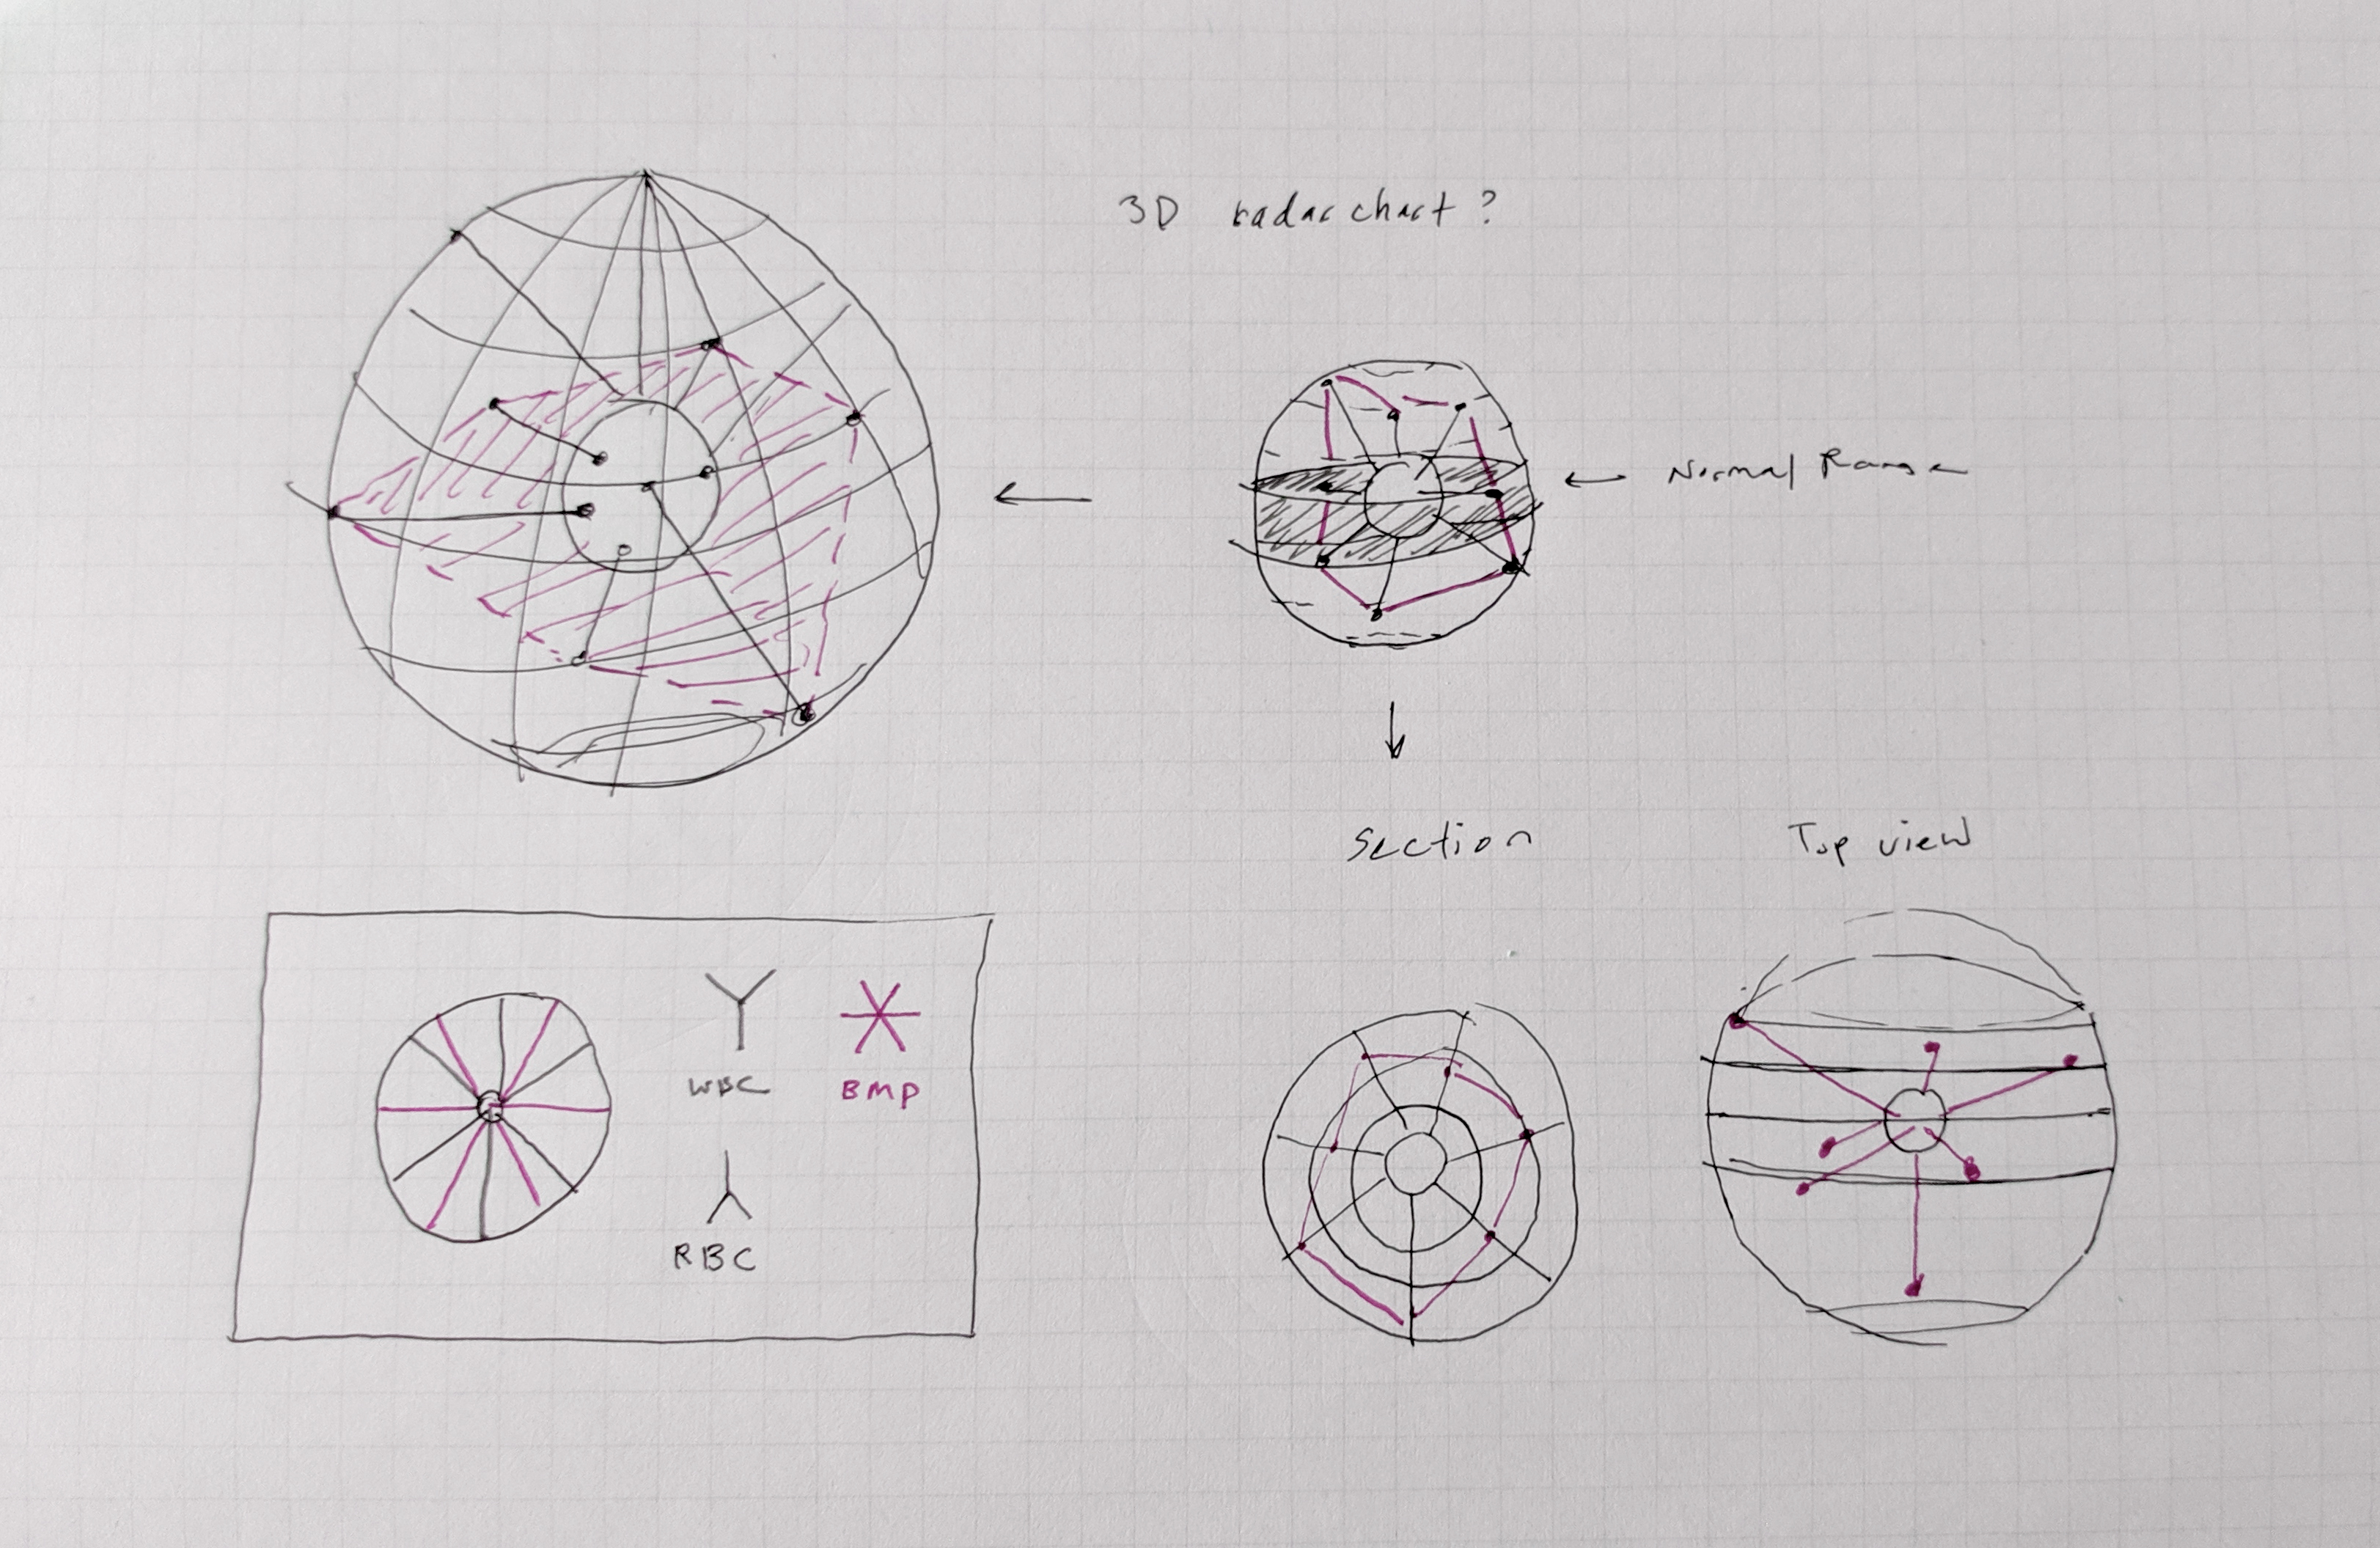 3D radar chart ?
Normal Range
Section
Top view
WBC
BMP
RBC